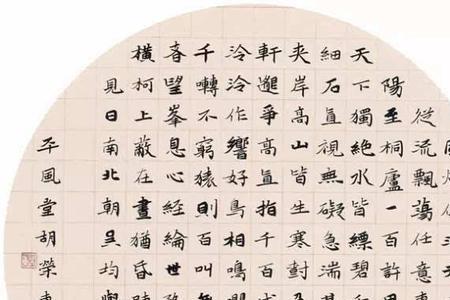 從流飄蕩任意
陽至桐廬一百許
天下獨絕水皆縹碧
細石直視無礙急湍
夾岸高山皆生寒樹
軒邈爭高直指千百
泠泠作響好鳥相鳴
千囀不窮猿則百叫
者望峯息心經綸世
橫柯上蔽在晝猶昏
見日南北朝吳均與
平風堂胡榮